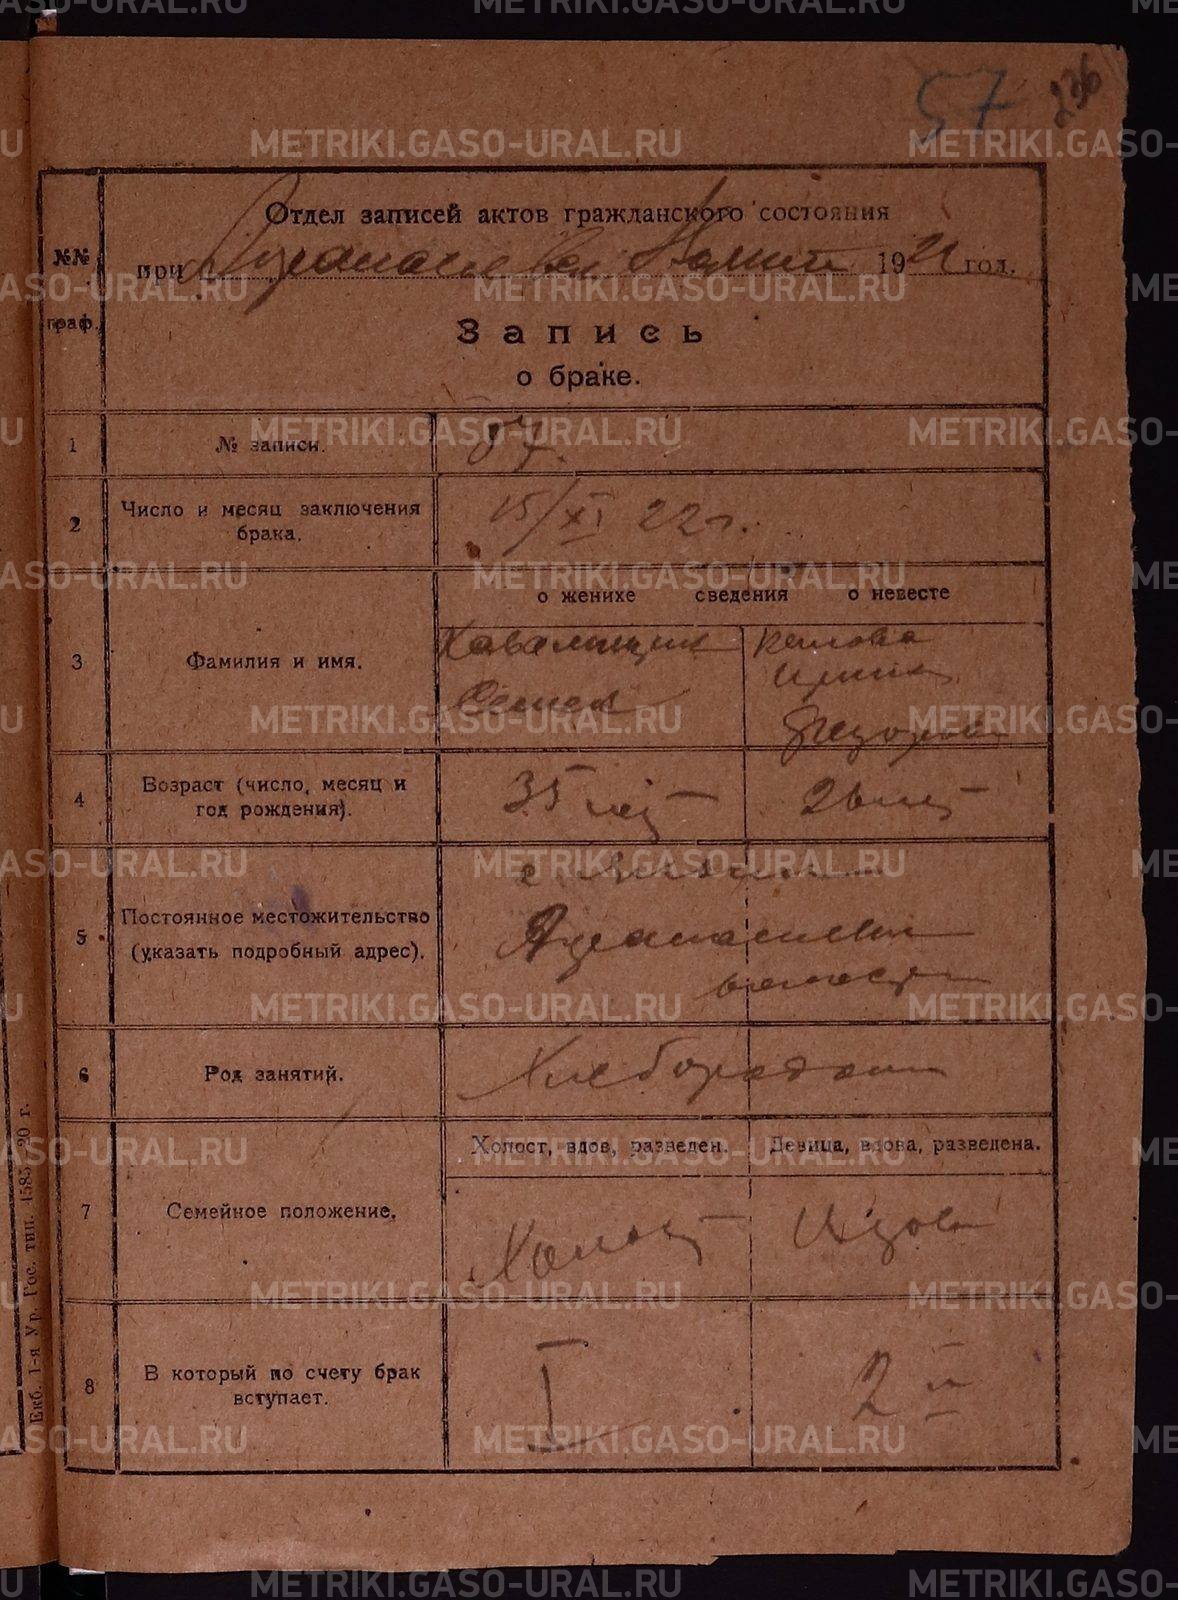 57
236
Отдел записей актов гражданского состояния
№№ граф.
при 1922 год.
Запись
о браке.
1 № записи. 57.
2 Число и месяц заключения брака. 15/XI 22 г.
о женихе сведения о невесте
3 Фамилия и имя.
4 Возраст (число, месяц и год рождения). 35 лет 26 лет
5 Постоянное местожительство (указать подробный адрес).
волости
6 Род занятий. Хлебородство
Холост, вдов, разведен. Девица, вдова, разведена.
7 Семейное положение. Холост Вдова
8 В который по счету брак вступает. I 2й
Екб. 1-я Ур. Гос. тип. 1585—20 г.
METRIKI.GASO-URAL.RU